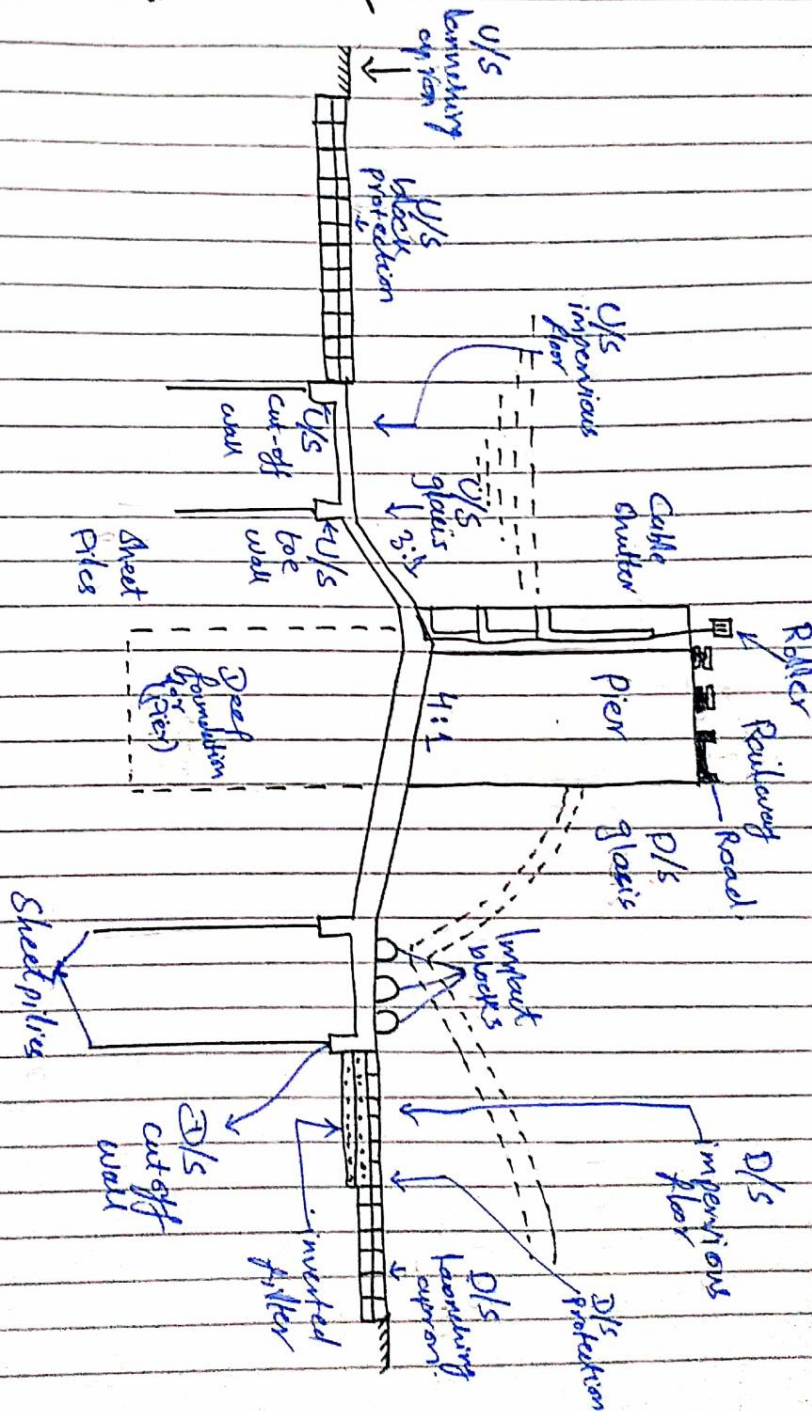 U/S
launching
apron
U/S
block
protection
U/S
impervious
floor
U/S
cut-off
wall
U/S
glacis
3:1
U/S
toe
wall
Sheet
Piles
Cable
Shutter
Roller
Railway
Road
Pier
4:1
Deep
foundation
for
(Pier)
D/S
glasis
Impact
blocks
Sheet pilies
D/S
cut off
wall
inverted
filter
D/S
impervious
floor
D/S
protection
D/S
launching
apron